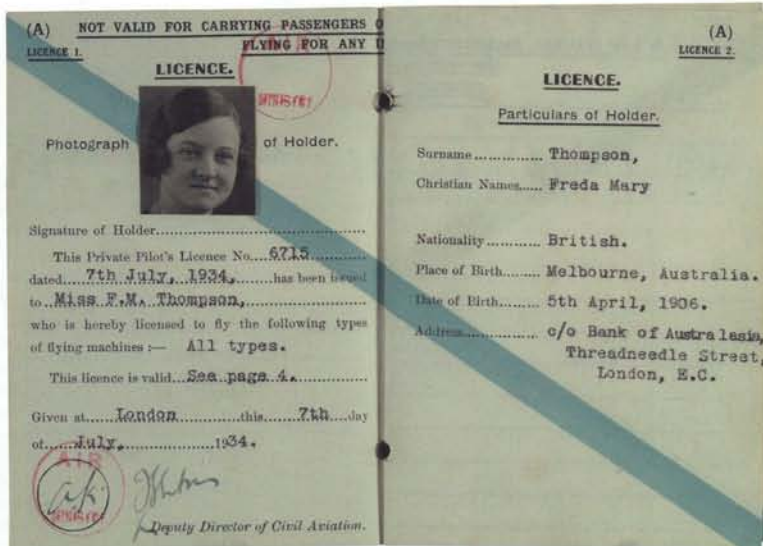 (A) NOT VALID FOR CARRYING PASSENGERS
LICENCE 1. FLYING FOR ANY
LICENCE.
AIR
MINISTRY
Photograph of Holder.
Signature of Holder
This Private Pilot's Licence No. 6715
dated 7th July, 1934, has been issued
to Miss F.M. Thompson,
who is hereby licensed to fly the following types
of flying machines :— All types.
This licence is valid See page 4.
Given at London this 7th day
of July, 1934.
AIR
MINISTRY
Deputy Director of Civil Aviation.
(A)
LICENCE 2.
LICENCE.
Particulars of Holder.
Surname Thompson,
Christian Names Freda Mary
Nationality British.
Place of Birth Melbourne, Australia.
Date of Birth 5th April, 1906.
Address c/o Bank of Australasia,
Threadneedle Street,
London, E.C.